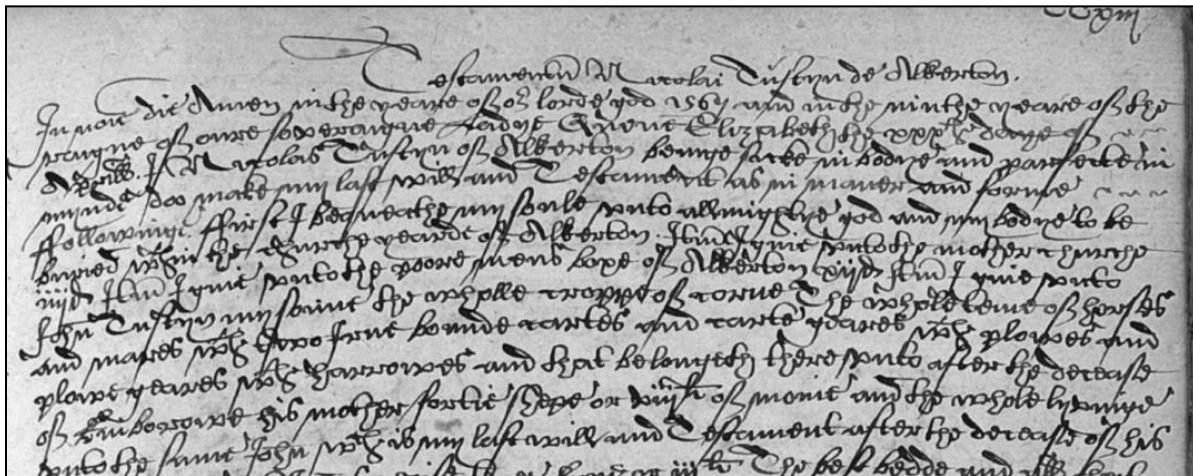 CCxiii
Testamentū Nicolai Tustyn de Alkerton.
In noīe die Amen in the yeare of oʳ lorde god 1567 and in the ninthe yeare of the
raigne of oure soveraigne Ladye Quene Elizabeth the xxxᵗʰ daye of
Aprill. I Nicolas Tustyn of Alkerton beinge sicke in bodye and parfecte in
mynde doo make my last will and Testament as in maner and forme
ffollowinge ffirst I bequeathe my soule vnto allmightye god and my bodye to be
buried wᵗʰin the churche yearde of Alkerton. Itm̄ I give vnto the mother churche
iiijd Itm̄ I give vnto the poore mens boxe of Alkerton xijd Itm̄ I give vnto
John Tustyn my sonne the wholle croppe of corne The whole teme of horses
and mares wᵗʰ two Irne bounde cartes and carte geares wᵗʰ plowes and
plowe geares wᵗʰ harrowes and that belongeth there vnto after the decease
of his mother fortie shepe or of monie and the whole lyvinge
vnto the same John wᶜʰ is my last will and Testament after the decease of his
The best bedde and